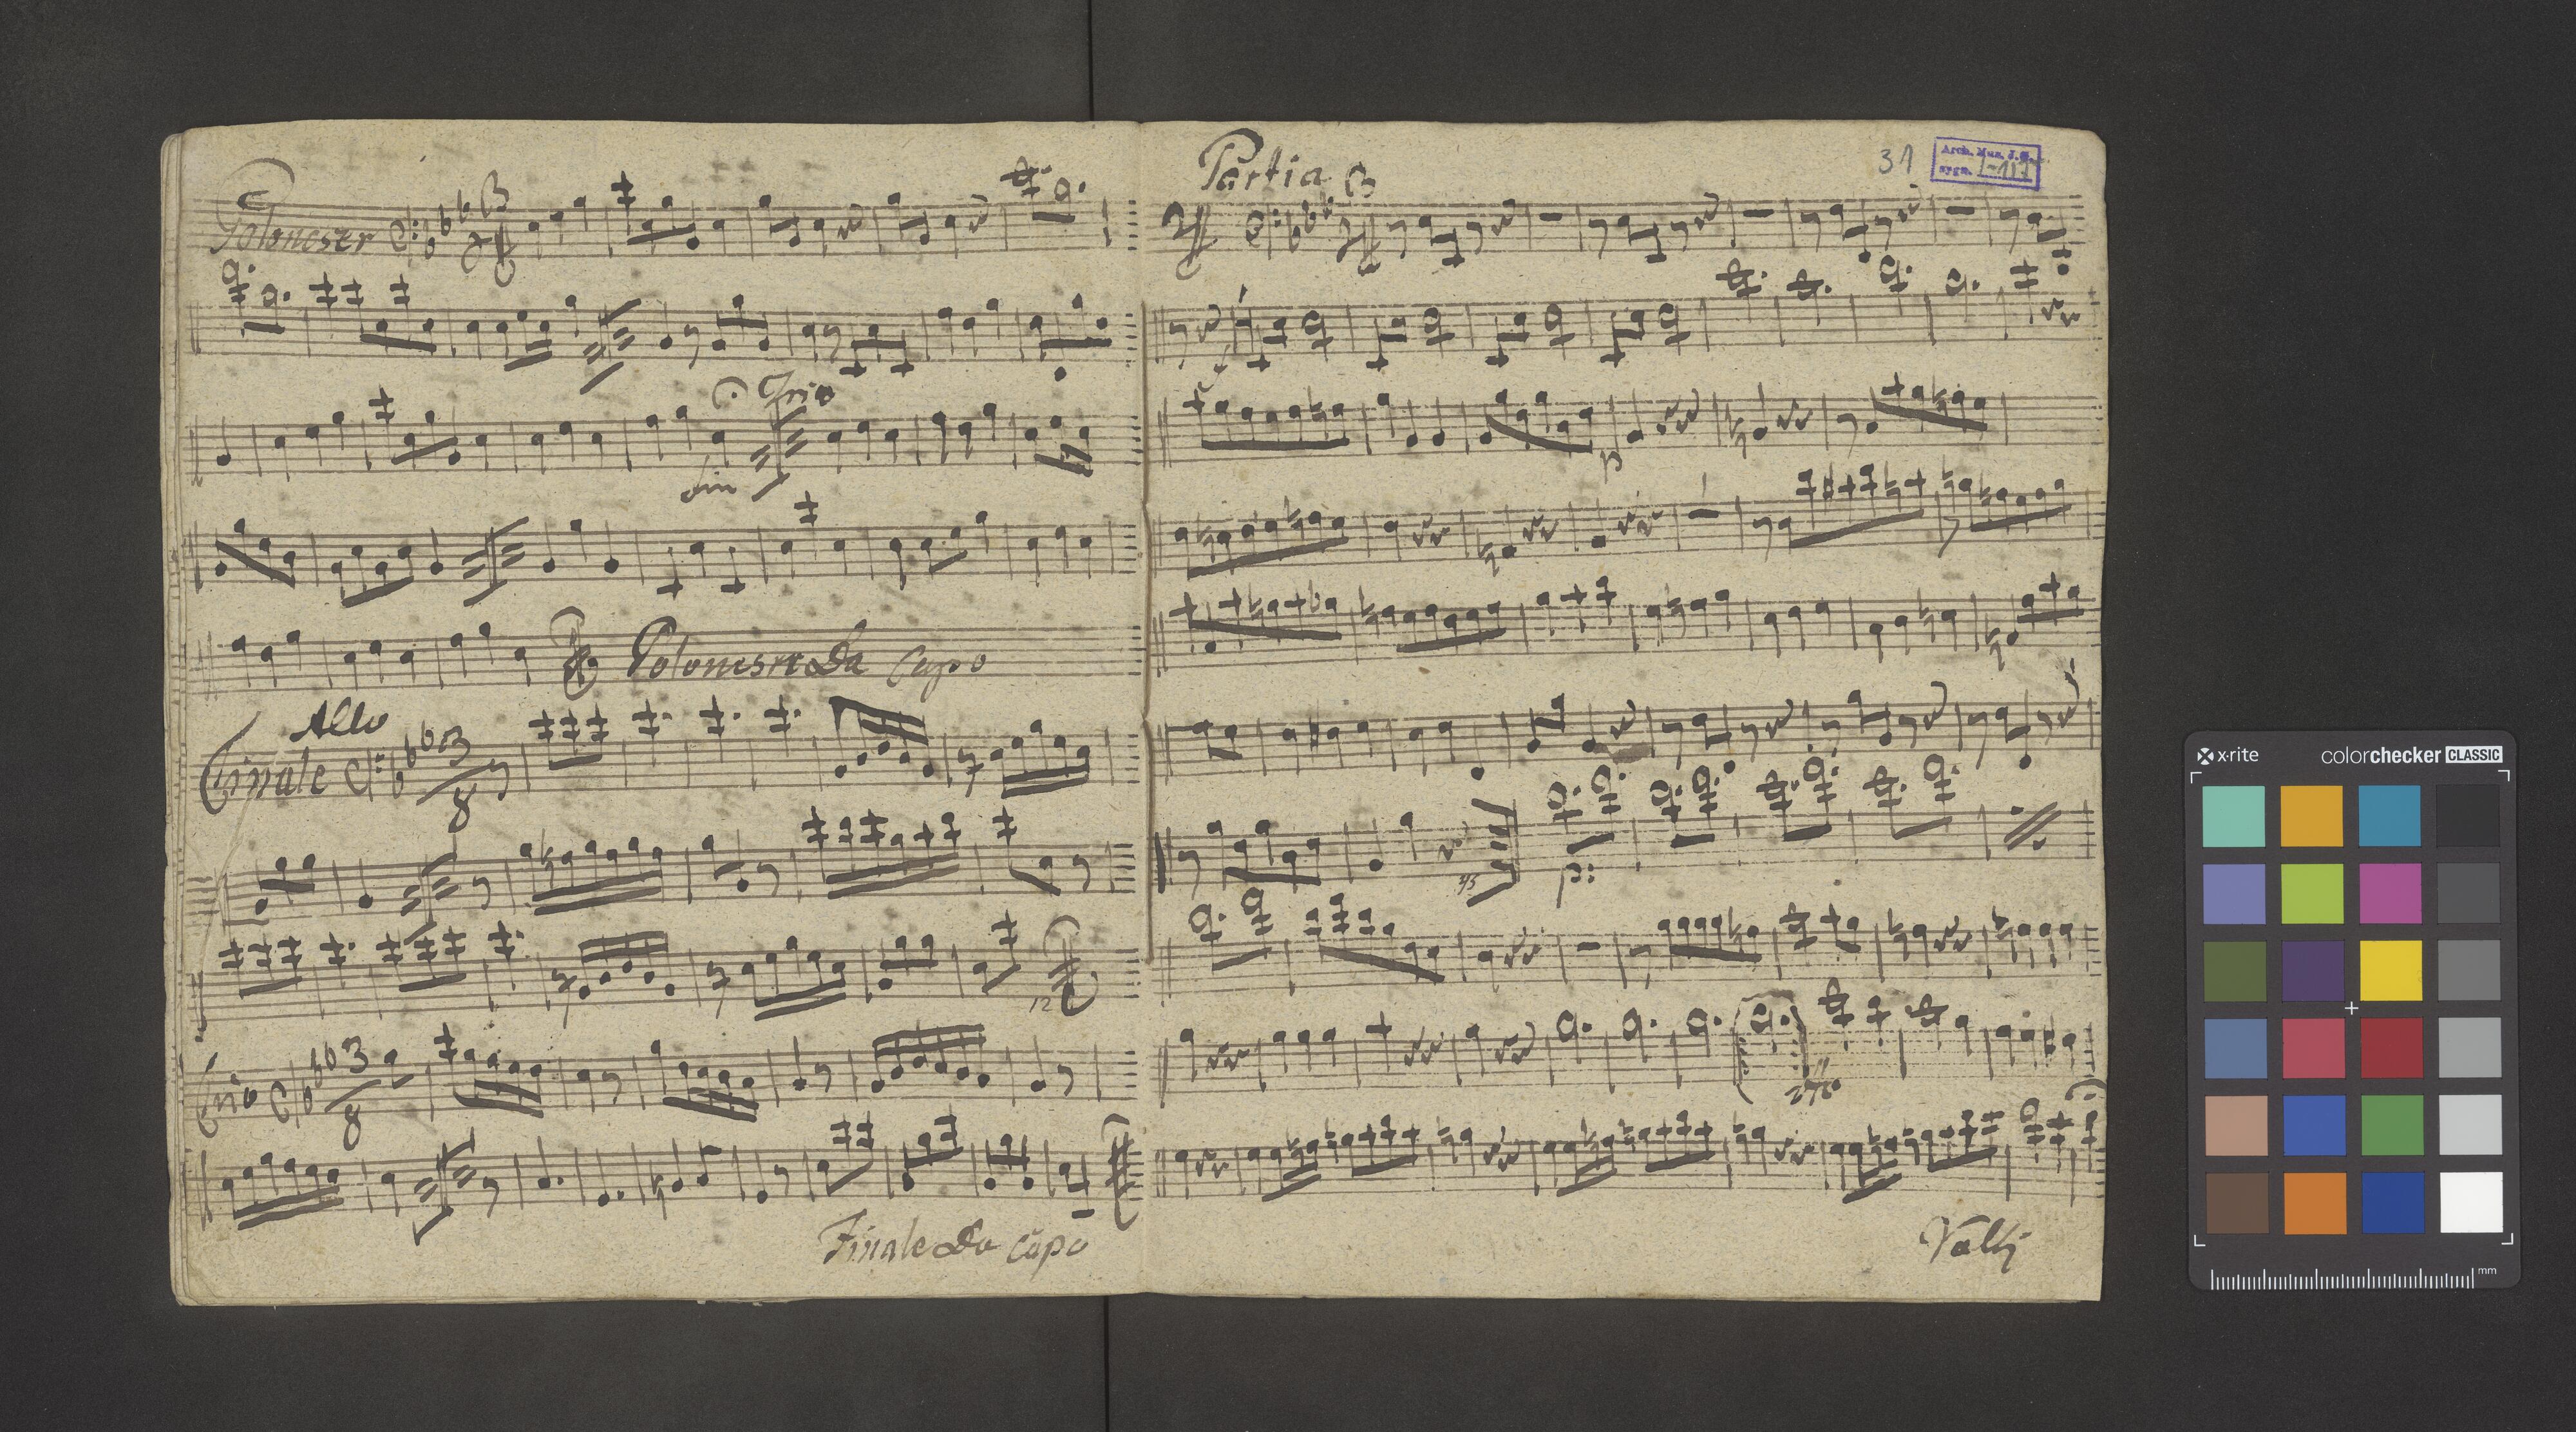 Poloneser 3
Trio
fin
Polonesre Da Capo
Allo
Finale 3
8
12
Trio 3
8
Finale Da Capo
Partia 3
31
Arch. Mus. J. G.
sygn. I-117
f
p
p:
Valti
x·rite
colorchecker CLASSIC
mm